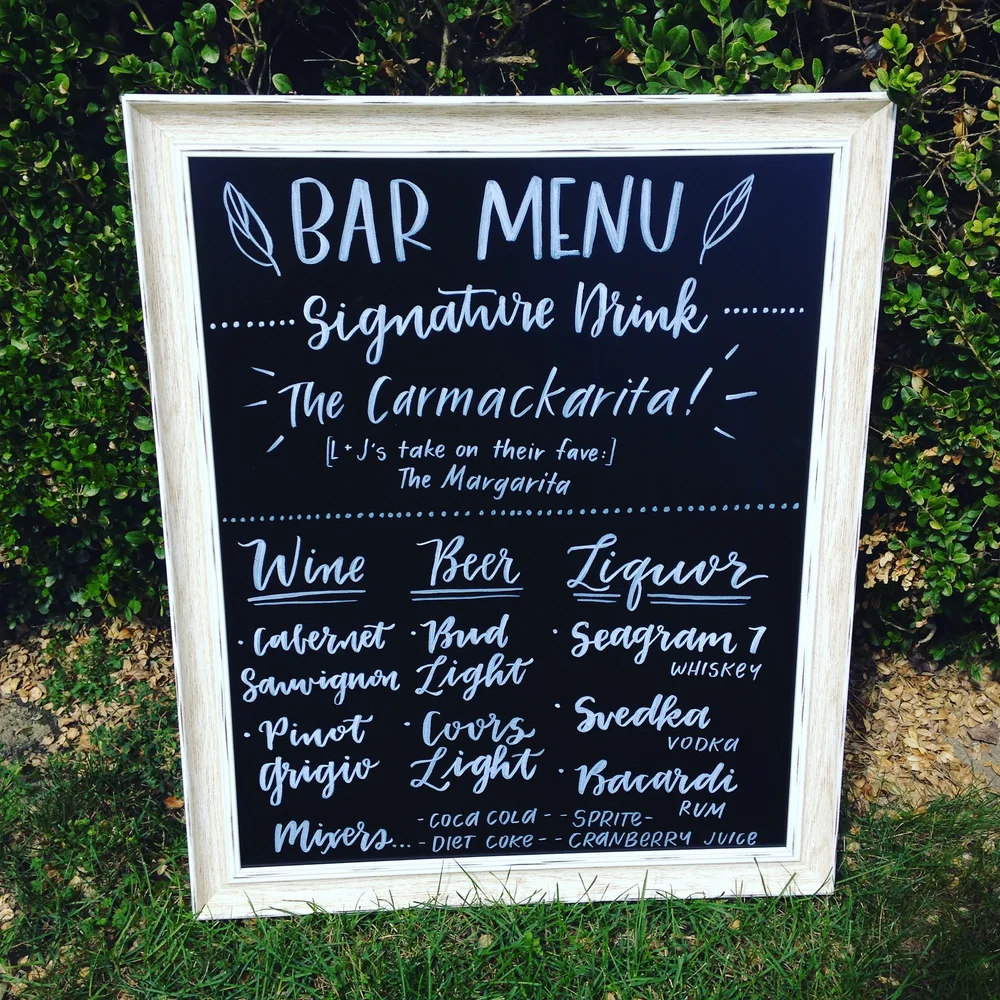 BAR MENU
Signature Drink
The Carmackarita!
[L + J's take on their fave:]
The Margarita
Wine
· Cabernet
Sauvignon
· Pinot
Grigio
Beer
· Bud
Light
· Coors
Light
Liquor
· Seagram 7
WHISKEY
· Svedka
VODKA
· Bacardi
RUM
Mixers... - COCA COLA - - SPRITE -
- DIET COKE - - CRANBERRY JUICE